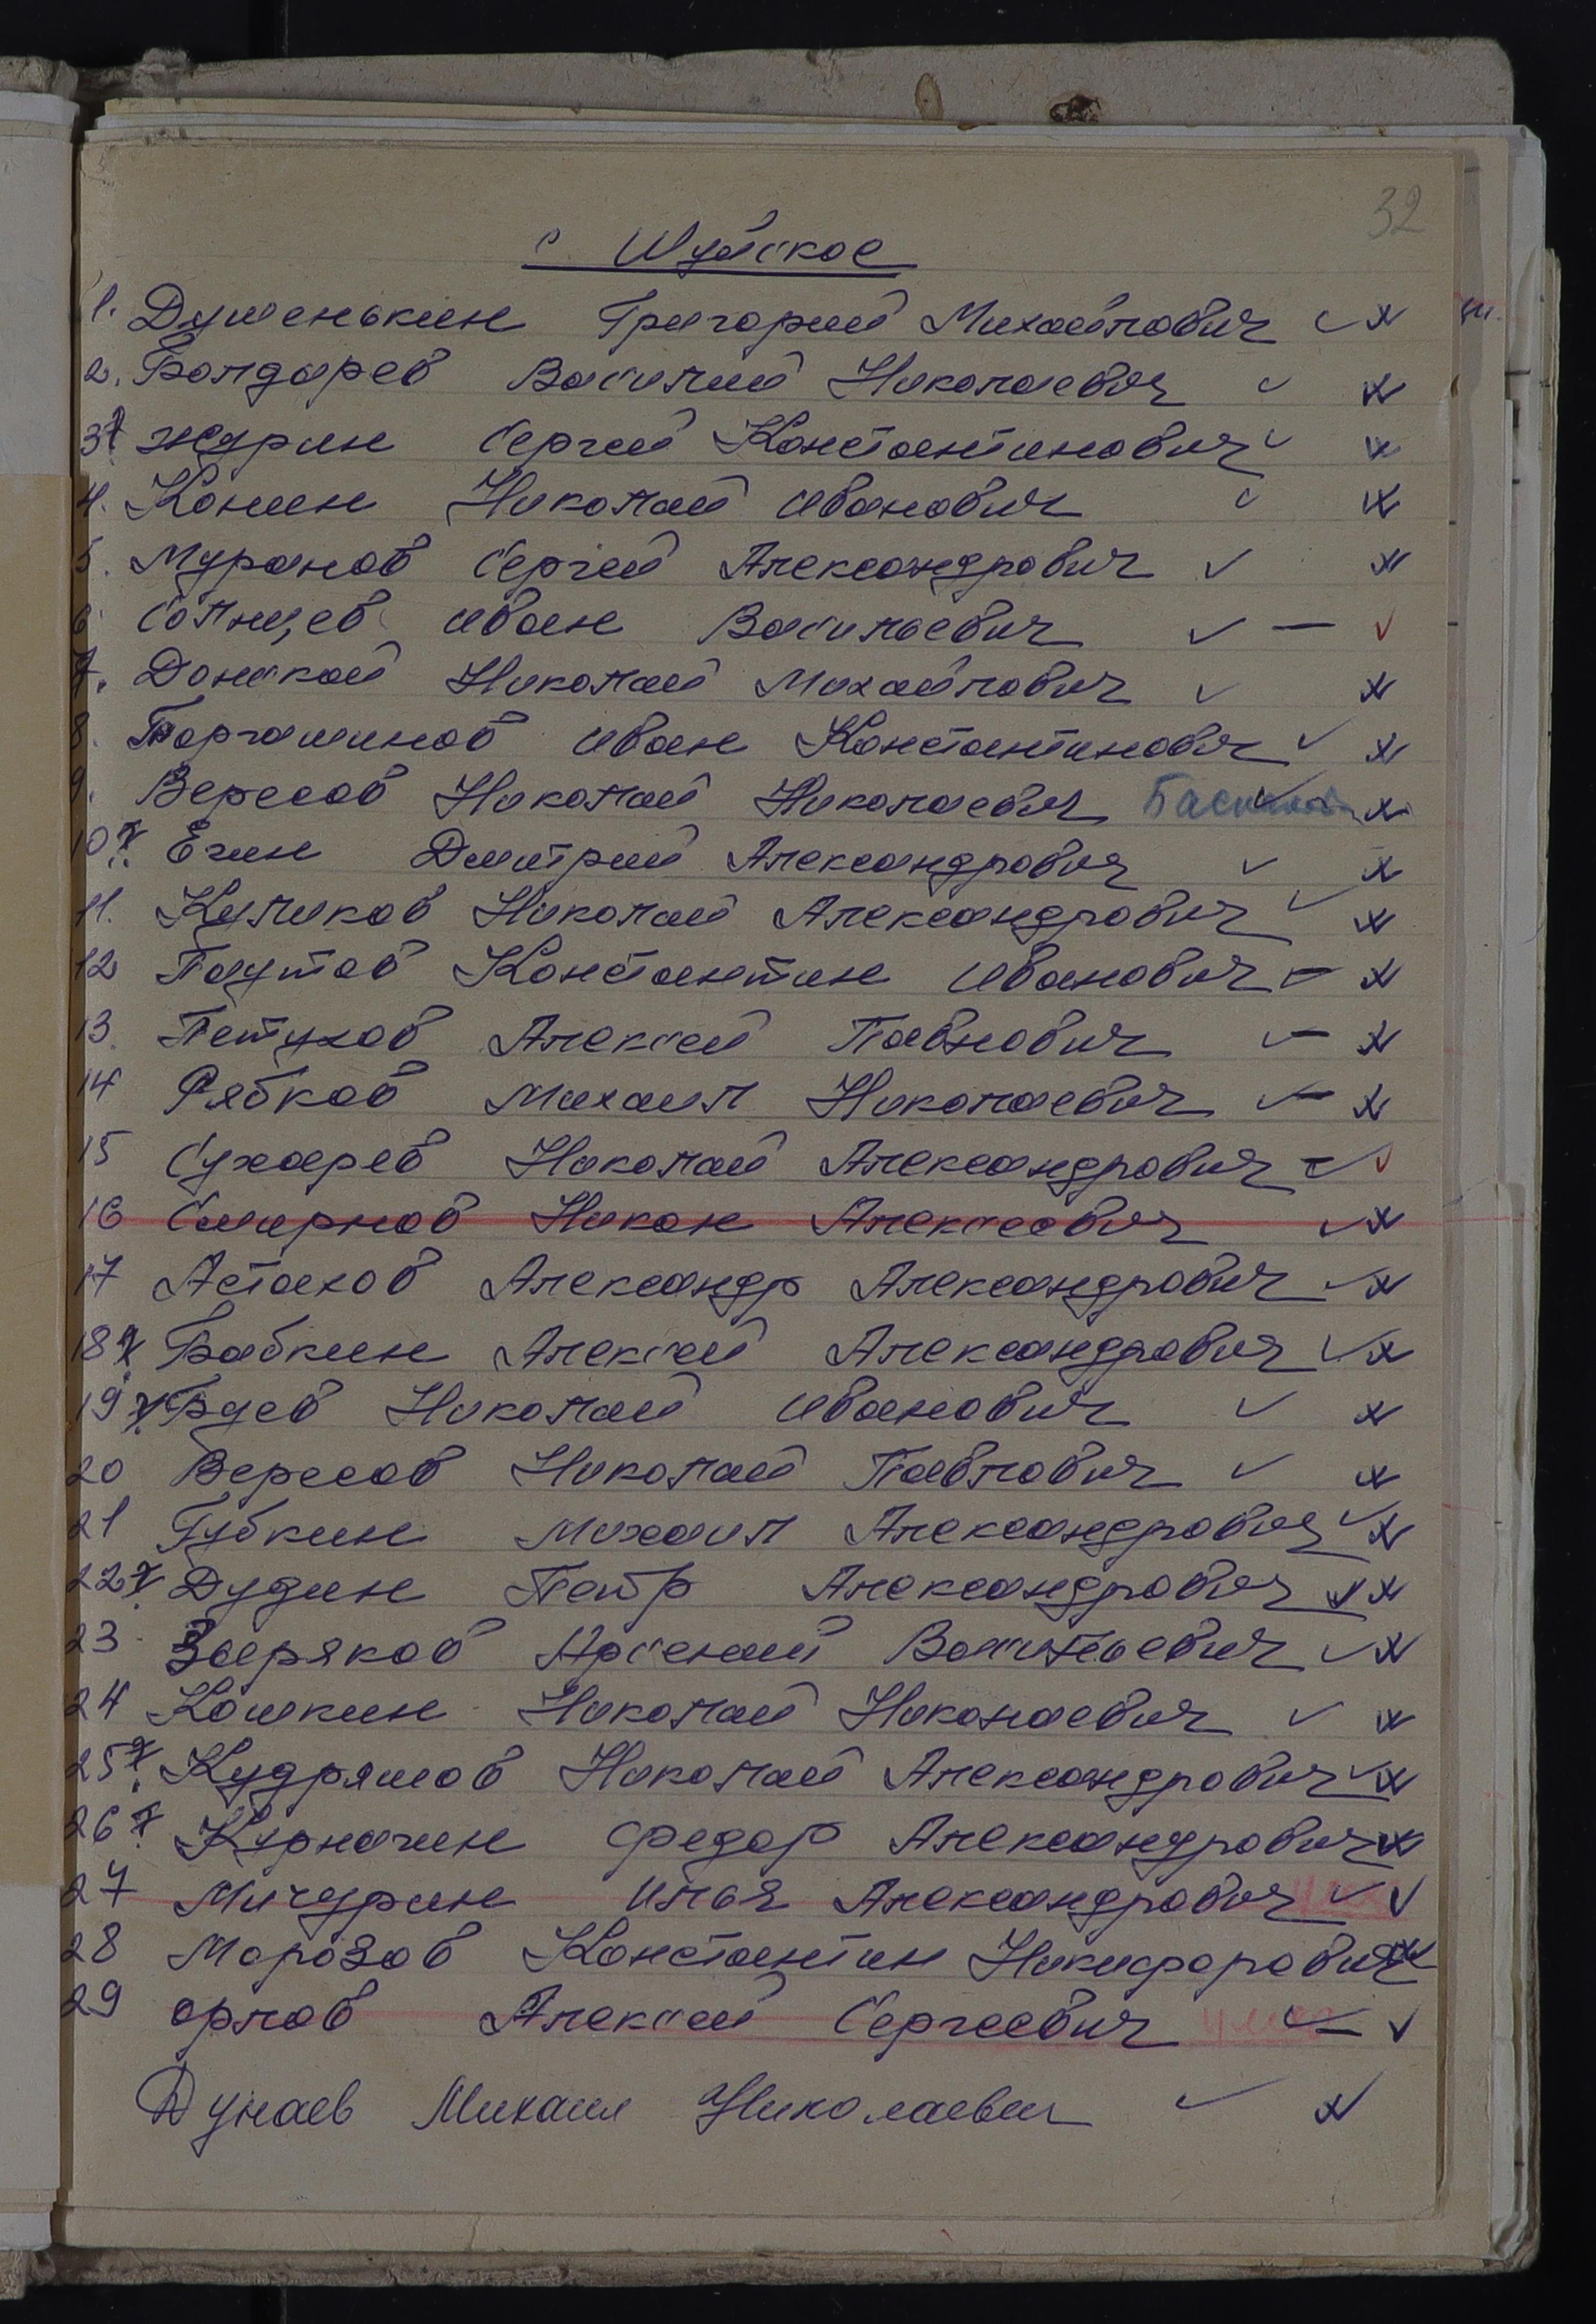 32
с. Шуйское
1. Душенькин Григорий Михайлович
2. Бондарев Василий Николаевич
3. Журин Сергей Константинович
4. Конин Николай Иванович
5. Муранов Сергей Александрович
6. Солнцев Иван Васильевич
7. Донской Николай Михайлович
8. Баргашинов Иван Константинович
9. Вересов Николай Николаевич
10. Егин Дмитрий Александрович
11. Куликов Николай Александрович
12 Паутов Константин Иванович
13. Петухов Алексей Павлович
14 Рябков Михаил Николаевич
15 Сухарев Николай Александрович
16 Смирнов Никон Алексеевич
17 Астахов Александр Александрович
18 Бабкин Алексей Александрович
19 Буев Николай Иванович
20 Вересов Николай Павлович
21 Губкин Михаил Александрович
22 Дудин Петр Александрович
23 Зверяков Арсений Васильевич
24 Кошкин Николай Николаевич
25 Кудряшов Николай Александрович
26 Курначин Федор Александрович
27 Мичурин Илья Александрович
28 Морозов Константин Никифорович
29 Орлов Алексей Сергеевич
Дунаев Михаил Николаевич